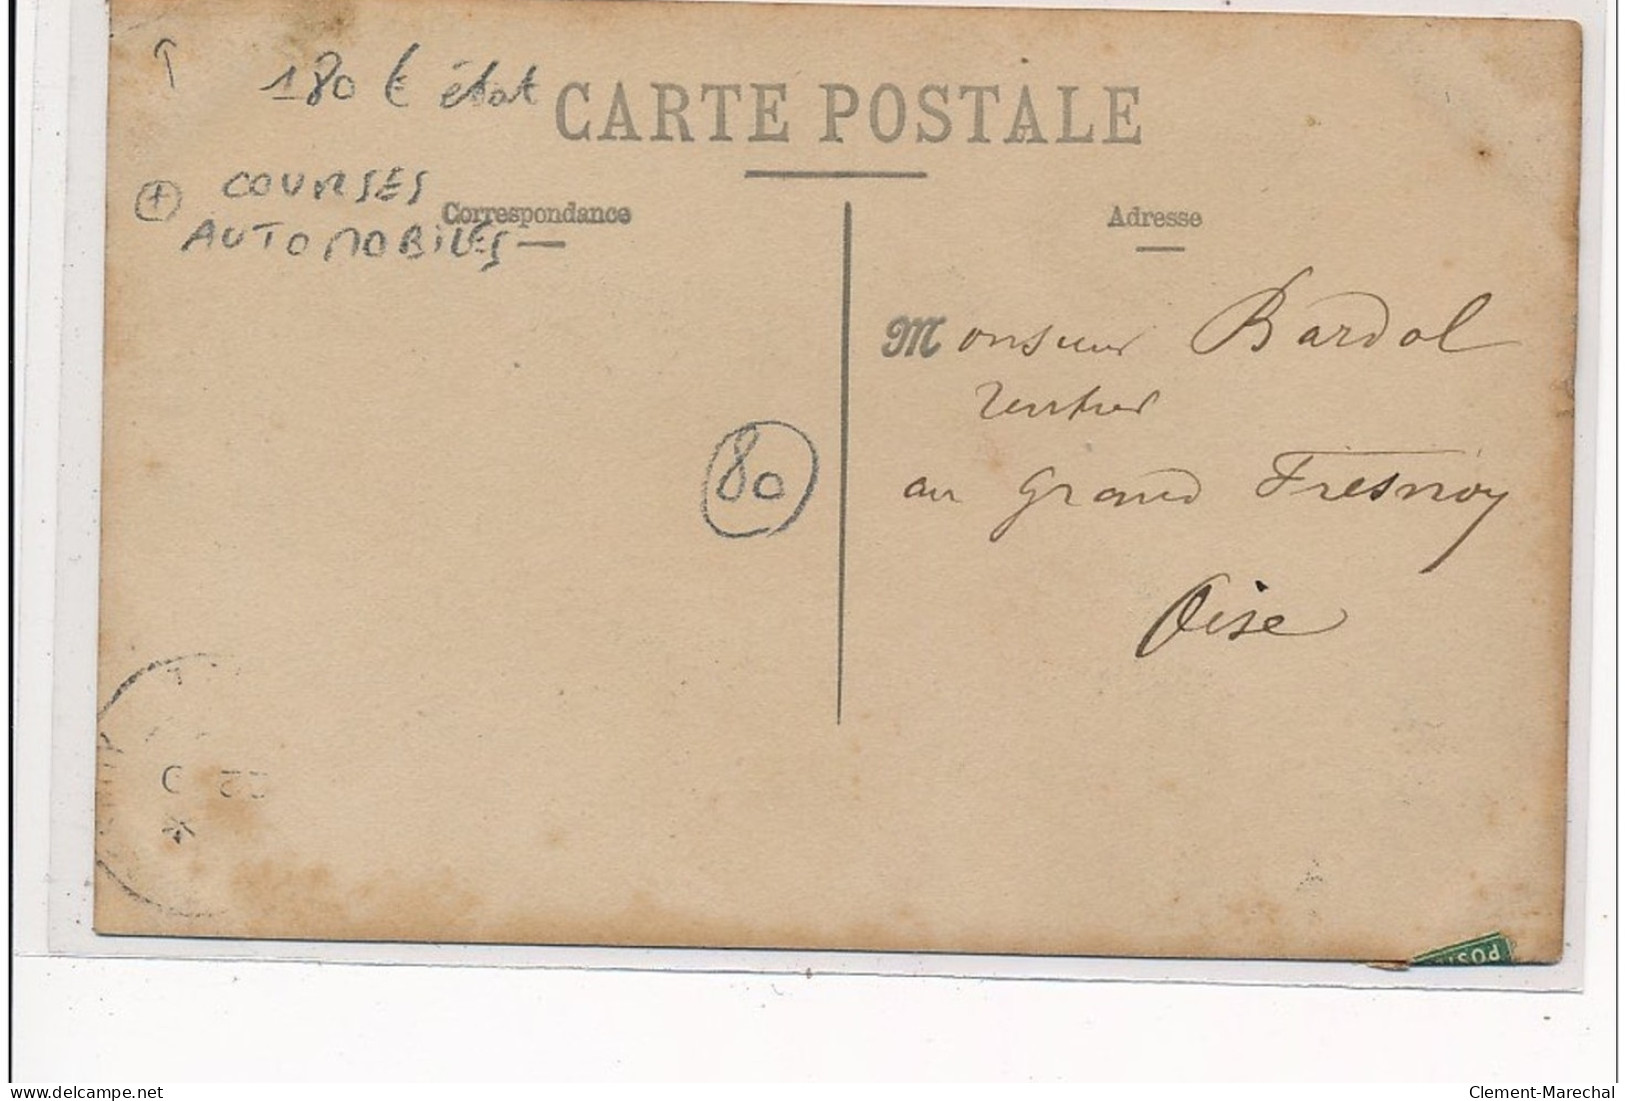 180 € état
CARTE POSTALE
+ COURSES
AUTOMOBILES
Correspondance
Adresse
Monsieur Bardol
rentier
80
au grand Fresnoy
Oise
POST
the-postcard.com
Clement-Marechal